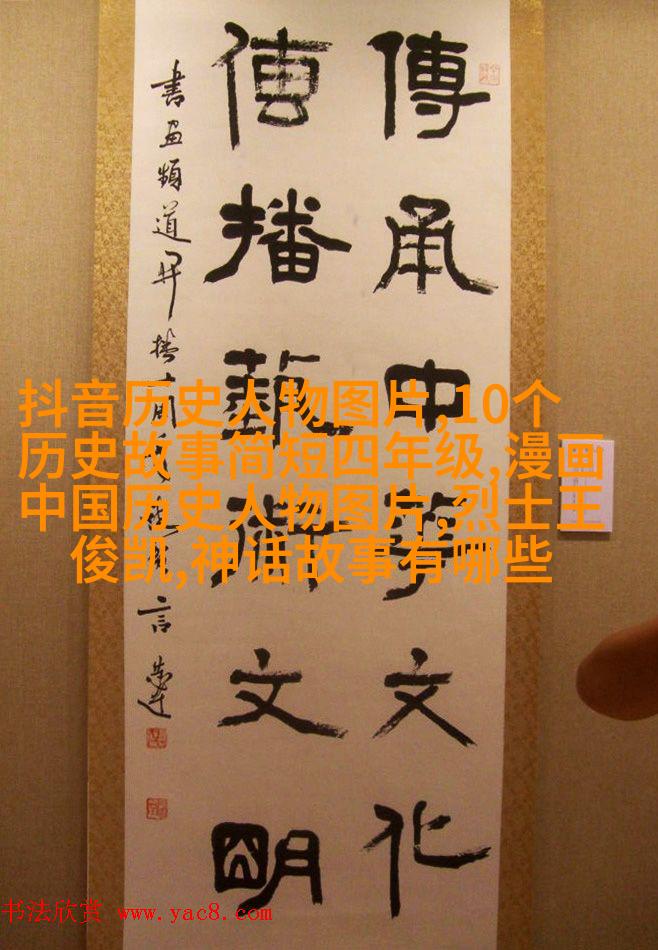 傳承中華文化
傳播藝術文明
書畫頻道開播
抖音历史人物图片,10个
历史故事简短四年级,漫画
中国历史人物图片,烈士王
俊凯,神话故事有哪些
书法欣赏 www.yac8.com